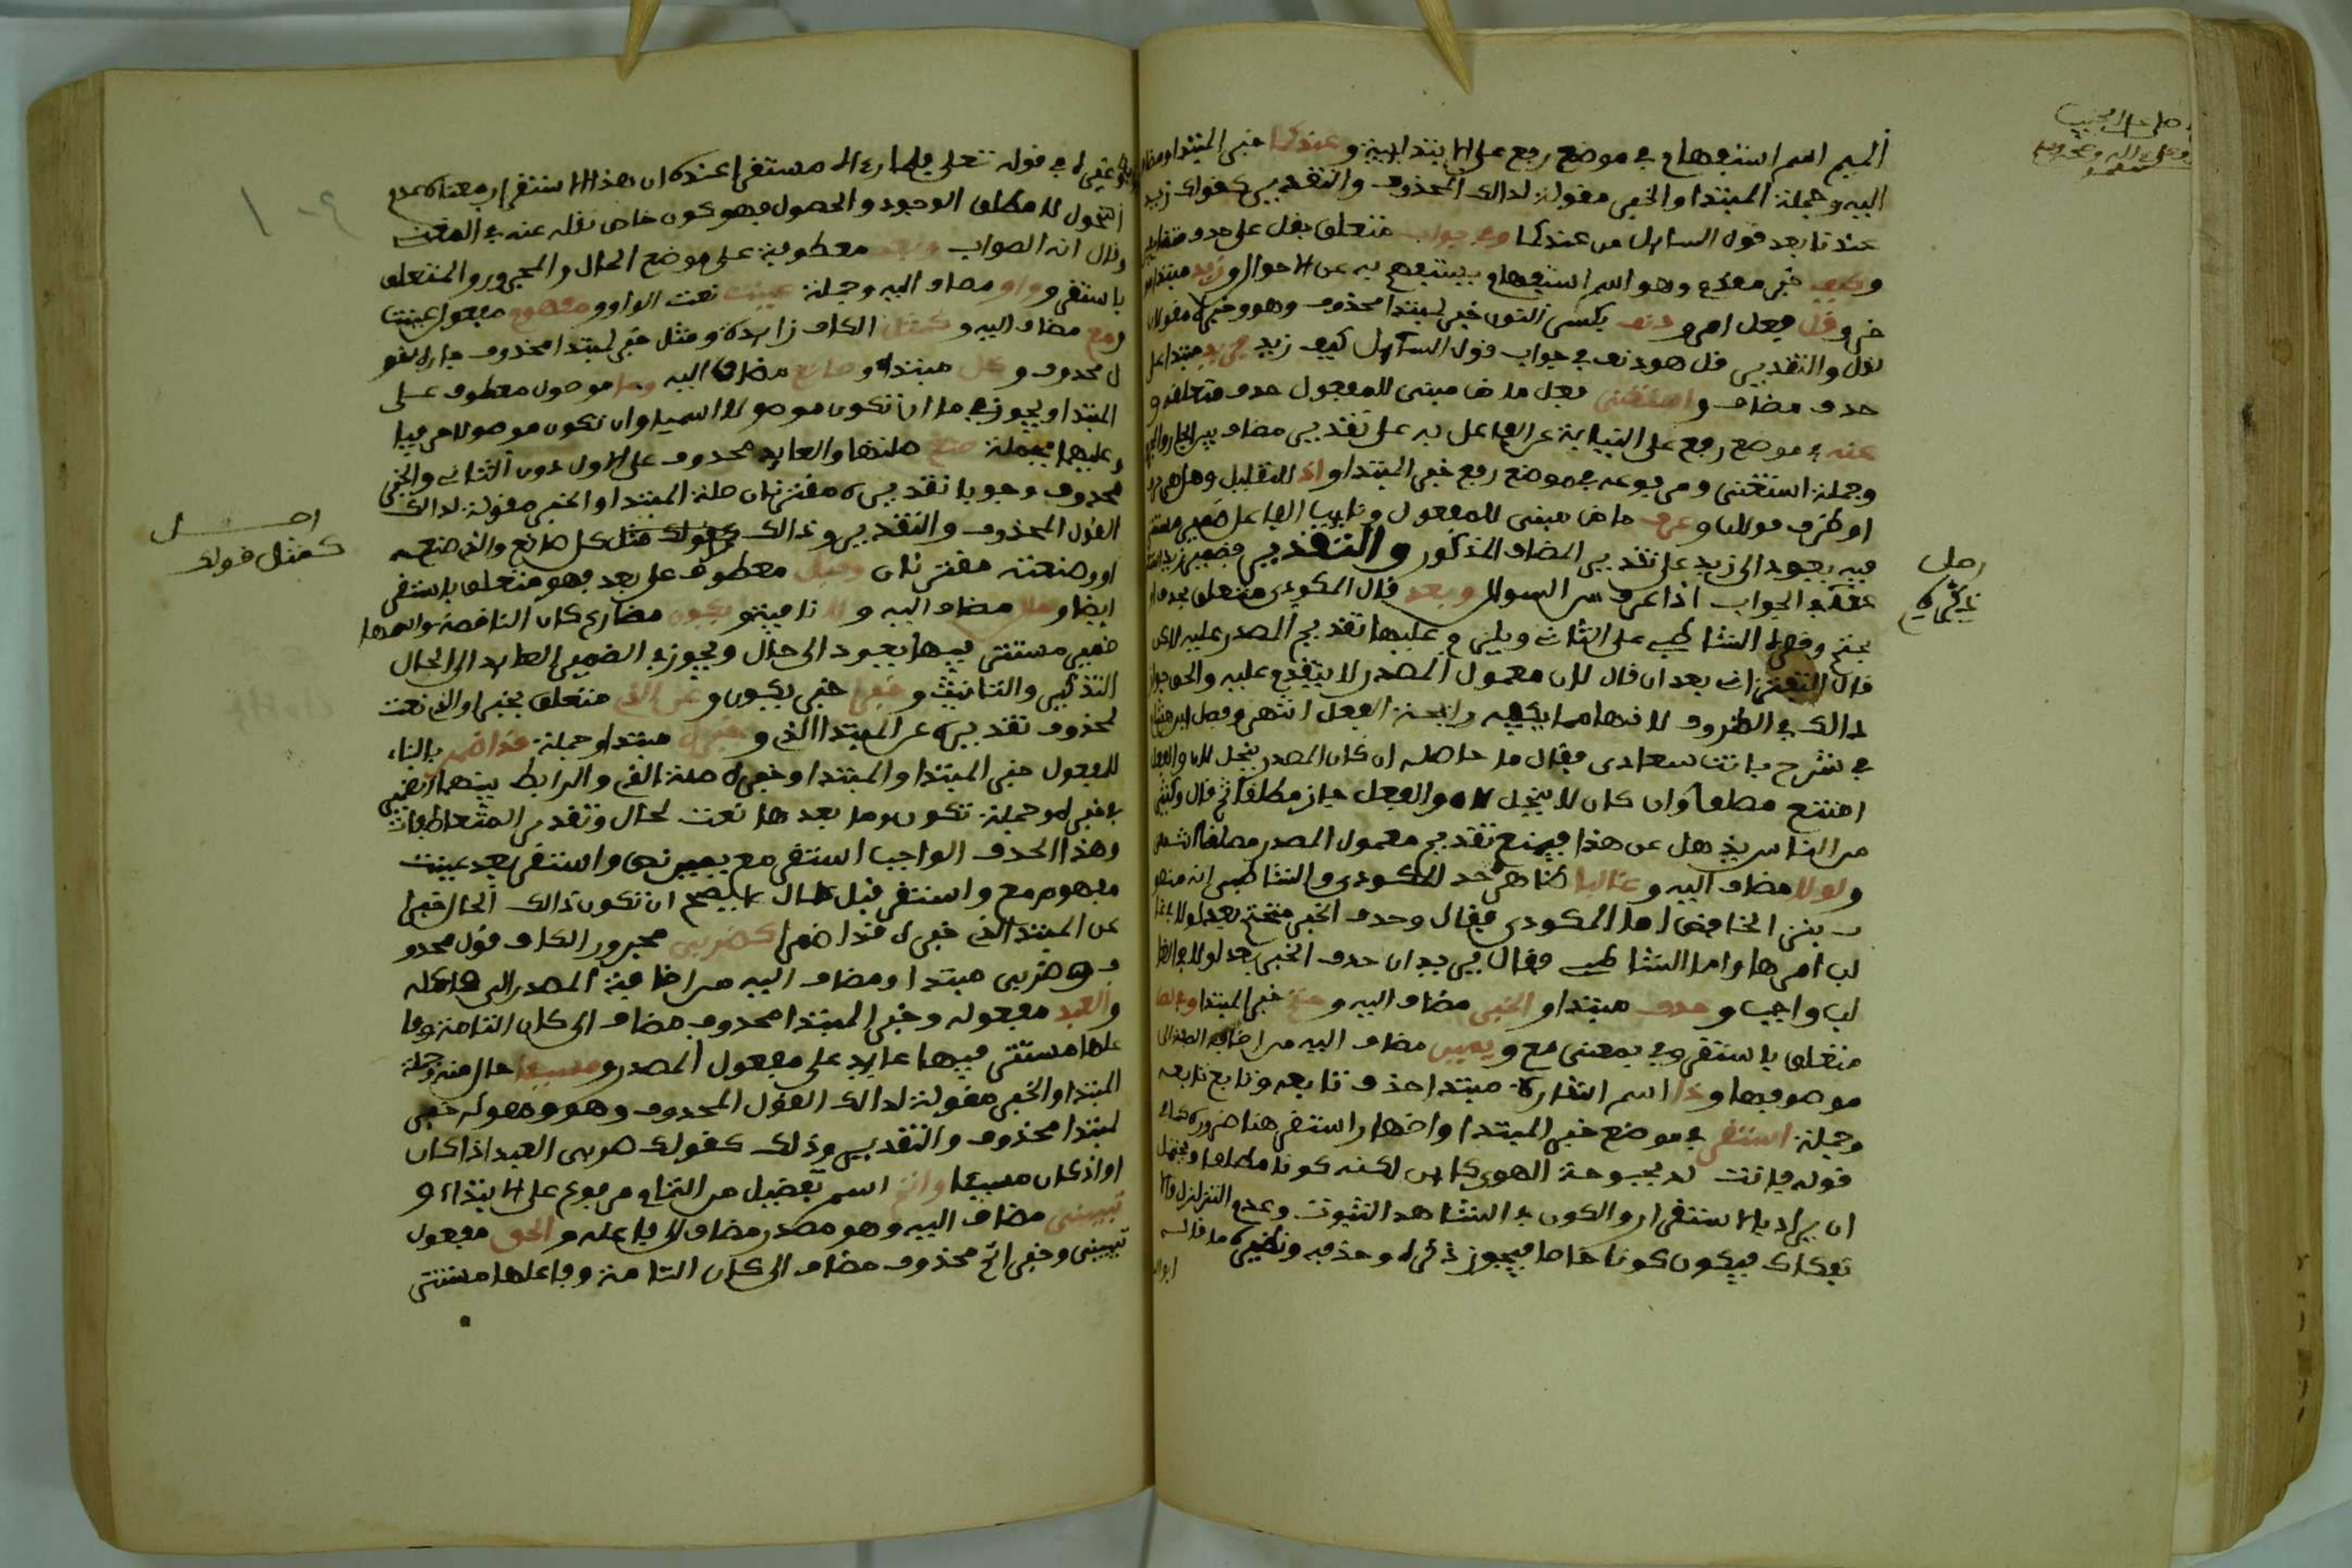 الميم اسم استفهام في موضع رفع على الابتدائية وعندكما خبر المبتدا ومضاف
اليه وجملة المبتدا والخبر مقولة لذالك المحذوف والتقدير كقولك زيد
عندنا بعد قول السائل من عندكما وفي جواب متعلق بقل على حذف مضاف
وكيف خبر مقدم وهو اسم استفهام يستفهم به عن الاحوال وزيد مبتدا
وقل فعل امر ودنف بكسر النون خبر لمبتدا محذوف وهو وخبره مقولان
لقل والتقدير قل هو دنف في جواب قول السائل كيف زيد فزيد مبتدا على
حذف مضاف واستغني فعل ماض مبني للمفعول حذف متعلقه و
عنه في موضع رفع على النيابة عن الفاعل به على تقدير مضاف بين الجار والمجرور
وجملة استغنى ومرفوعه في موضع رفع خبر المبتدا واذ للتعليل وهل هي حرف
او ظرف قولان وعرف ماض مبني للمفعول ونايب الفاعل ضمير مستتر
فيه يعود الى زيد على تقدير المضاف المذكور والتقدير فضمير زيد استغني
عنه في الجواب اذا عرف من السوال وبعد قال المكودي متعلق بحذف
الشاطبي على الثاني ويلزم عليهما تقديم المصدر عليه لاكن
قال التفتزاني بعد ان قال لان معمول المصدر لا يتقدم عليه والحق جواز
ذالك في الظروف لانها مما يكفيه رايحة الفعل انتهى وفصل ابن هشام
في شرح بانت سعاد فقال ما حاصله ان كان المصدر ينحل لان والفعل
امتنع مطلقا وان كان لا ينحل لان والفعل جاز مطلقا ثم قال وكثير
من الناس يذهل عن هذا فيمنع تقديم معمول المصدر مطلقا انتهى
ولولا مضاف اليه وغالبا ظاهر حد المكودي والشاطبي انه منصو
ب بنزع الخافض اما المكودي فقال وحذف الخبر متحتم بعد لولا في غا
لب امرها واما الشاطبي فقال يريد ان حذف الخبر بعد لولا في الغا
لب واجب وحذف مبتدا والخبر مضاف اليه وحتم خبر المبتدا وفي نص
متعلق باستقر وفي بمعنى مع ويمين مضاف اليه من اضافة الصفة الى
موصوفها وذا اسم اشارة مبتدا حذف تابعه وتابع تابعه
وجملة استقر في موضع خبر المبتدا واظهار استقر هنا ضرورة كما في
قوله فانت لدى بحبوحة الهون كاين لكنه كونا مطلقا ويحتمل
ان يراد بالاستقرار والكون في الشاهد الثبوت وعدم التزلزل والا
نفكاك فيكون كونا خاصا فيجوز ذكره وحذفه ونظيره ما قاله
ابو ال
اصل
تذكره
بقاء وغيره في قوله تعالى فلما رءاه مستقرا عنده ان هذا الاستقرار معناه عدم
التحول لا مطلق الوجود والحصول فهو كون خاص نقله عنه في المغني
وقال انه الصواب وبعد معطوفة على موضع الحال والمجرور والمتعلق
باستقر وواو مضاف اليه وجملة عينت نعت الواو ومفهوم مفعول عينت
ومع مضاف اليه وكمثل الكاف زايدة ومثل خبر لمبتدا محذوف جار لقو
ل محذوف وكل مبتدا وصانع مضاف اليه وما موصول معطوف على
المبتدا ويجوز في ما ان تكون موصولا اسميا وان تكون موصولا حرفيا
وعليهما فجملة صنع صلتها والعايد محذوف على الاول دون الثاني والخبر
محذوف وجوبا تقديره مقترنان وجملة المبتدا والخبر مقولة لذالك
القول المحذوف والتقدير وذالك كقولك مثل كل صانع والذي صنعه
او وصنعته مقترنان وقبل معطوف على بعد فهو متعلق باستقر
ايضا وحال مضاف اليه ولا نافية ويكون مضارع كان الناقصة واسمها
ضمير مستتر فيها يعود الى حال ويجوز في الضمير العايد الى الحال
التذكير والتانيث وخبرا خبر يكون وعن الذي متعلق بخبرا والذي نعت
لمحذوف تقديره عن المبتدا الذي وخبره مبتدا وجملة قد اضمر بالبناء
للمفعول خبر المبتدا والمبتدا وخبره صلة الذي والرابط بينهما الضمير
في خبره وجملة تكون وما بعدها نعت لحال وتقدير المتعاطفات
وهذا الحذف الواجب استقر مع يمين نص واستقر بعد عينت
مفهوم مع واستقر قبل حال لا يصح ان تكون ذالك الحال خبرا
عن المبتدا الذي خبره قد اضمرا كضربي مجرور الكاف قول محذو
ف وضربي مبتدا ومضاف اليه من اضافة المصدر الى فاعله
والعبد مفعوله وخبر المبتدا محذوف مضاف الى كان التامة وفا
علها مستتر فيها عايد على مفعول المصدر ومسيئا حال منه وجملة
المبتدا والخبر مقولة لذالك القول المحذوف وهو ومقوله خبر
لمبتدا محذوف والتقدير وذلك كقولك ضربي العبد اذا كان
او اذ كان مسيئا واتم اسم تفضيل من التمام مرفوع على الابتداء و
تبييني مضاف اليه وهو مصدر مضاف الى فاعله والحق مفعول
تبييني وخبر اتم محذوف مضاف الى كان التامة وفاعلها مستتر
اصل
كمثل قولك
١٠٩